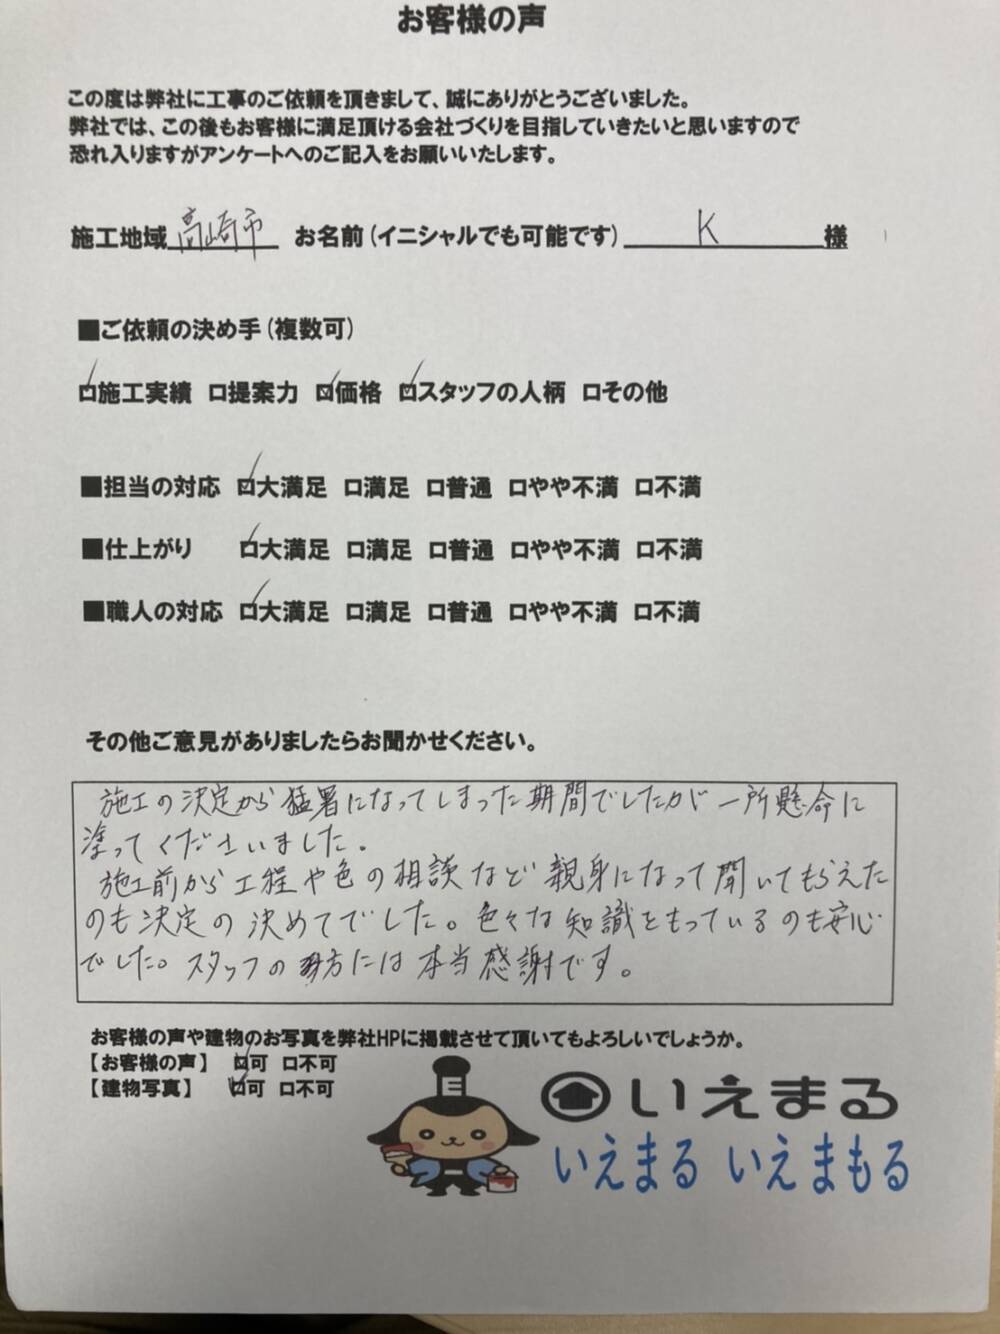 お客様の声
この度は弊社に工事のご依頼を頂きまして、誠にありがとうございました。
弊社では、この後もお客様に満足頂ける会社づくりを目指していきたいと思いますので
恐れ入りますがアンケートへのご記入をお願いいたします。
施工地域 高崎市 お名前(イニシャルでも可能です) K 様
■ご依頼の決め手(複数可)
☑施工実績 □提案力 ☑価格 ☑スタッフの人柄 □その他
■担当の対応 ☑大満足 □満足 □普通 □やや不満 □不満
■仕上がり ☑大満足 □満足 □普通 □やや不満 □不満
■職人の対応 ☑大満足 □満足 □普通 □やや不満 □不満
その他ご意見がありましたらお聞かせください。
施工の決定から猛暑になってしまった期間でしたが一所懸命に
塗ってくださいました。
施工前から工程や色の相談など親身になって聞いてもらえた
のも決定の決めてでした。色々な知識をもっているのも安心
でした。スタッフの方には本当感謝です。
お客様の声や建物のお写真を弊社HPに掲載させて頂いてもよろしいでしょうか。
【お客様の声】 ☑可 □不可
【建物写真】 ☑可 □不可
E
いえまる
いえまる いえまもる